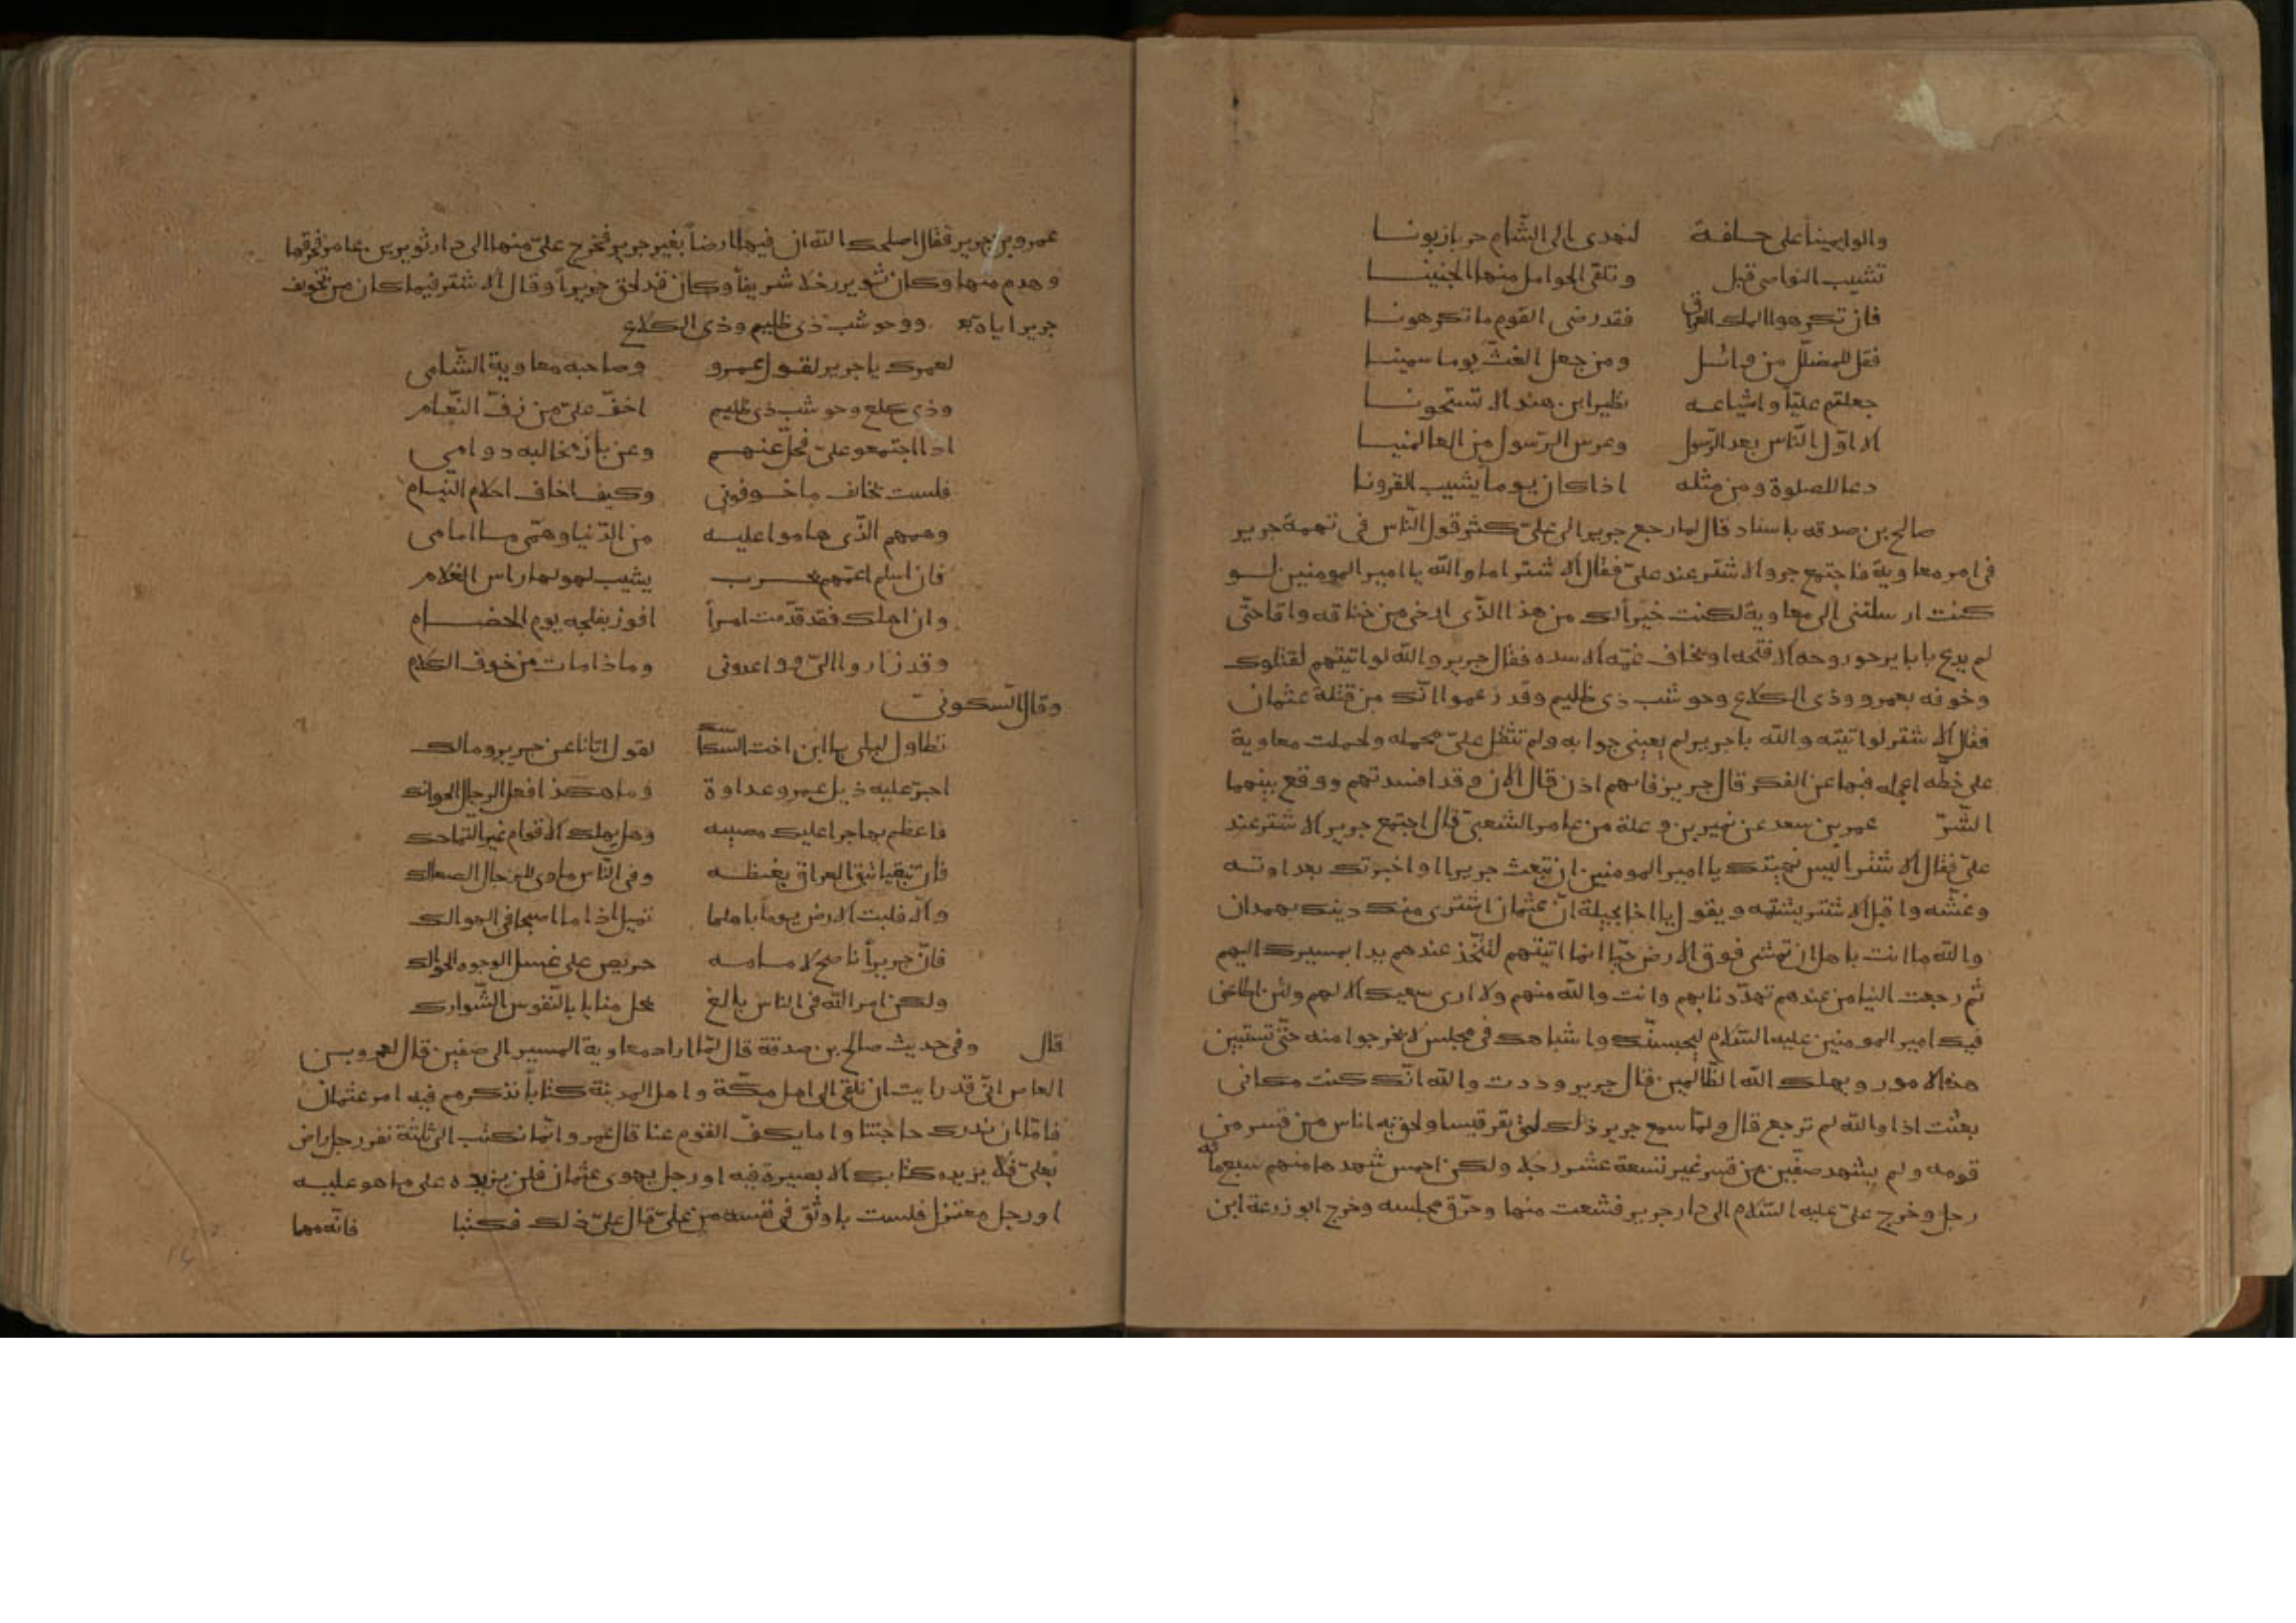 والوا يمينا على حلفة لنهدى الى الشام حربا زبونا
تشيب النواصى قبل وتلقى الحوامل منها الجنينا
فان تكرهوا الملك العراق فقد رضى القوم ما تكرهونا
فقل للمضلل من وائل ومن جعل الغث يوما سمينا
جعلتم عليا واشياعه نظير ابن هند الا تستحونا
الا اول الناس بعد الرسول وعرس الرسول من العالمينا
دعا للصلوة ومن مثله اذا كان يوما يشيب القرونا
صالح بن صدقه باسناد قال لما رجع جرير الى علىّ كثر قول الناس فى تهمة جرير
فى امر معاوية فاجتمع جرير والاشتر عند علىّ فقال الاشتر اما والله يا امير المومنين لو
كنت ارسلتنى الى معاوية لكنت خيرا لك من هذا الذى ارخى من خناقه واقام حتى
لم يدع بابا يرجو روحه الا فتحه او يخاف غمّه الا سده فقال جرير والله لو اتيتهم لقتلوك
وخوفه بعمرو وذى الكلاع وحوشب ذى ظليم وقد زعموا انّك من قتلة عثمان
فقال الاشتر لو اتيته والله يا جرير لم يعينى جوابه ولم تثقل علىّ محمله ولحملت معاوية
على خطّه اعجله فيها عن الفكر قال جرير فاتهم اذن قال الان وقد افسدتهم ووقع بينهما
الشّر عمر بن سعد عن نمير بن وعلة عن عامر الشعبىّ قال اجتمع جرير الاشتر عند
علىّ فقال الاشتر اليس نهيتك يا امير المومنين ان تبعث جريرا واخبرتك بعداوته
وغشّه واقبل الاشتر يشتمه ويقول يا اخا بجيلة انّ عثمان اشترى منك دينك بهمدان
والله ما انت باهل ان تمشى فوق الارض حيّا انما اتيتهم لتتّخذ عندهم يدا بمسيرك اليهم
ثم رجعت الينا من عندهم تهدّدنا بهم وانت والله منهم ولا ارى سعيك الا لهم ولئن اطاعنى
فيك امير المومنين عليه السّلام ليحبسنّك واشباهك فى مجلس لا يخرجوا منه حتّى تستبين
هذه الامور ويهلك الله الظّالمين قال جرير وددت والله انّك كنت مكانى
بعثت اذا والله لم ترجع قال ولمّا سمع جرير ذلك لحق بقرقيسا ولحق به اناس من قسر من
قومه ولم يشهد صفّين من قسر غير تسعة عشر رجلا ولكن احمس شهدها منهم سبعمائه
رجل وخرج علىّ عليه السّلام الى دار جرير فشعث منها وحرّق مجلسه وخرج ابو زرعة ابن
عمرو بن جرير فقال اصلحك الله ان فيها ارضا بغير جرير فخرج علىّ منها الى دار ثوير بن عامر فحرقها
وهدم منها وكان ثوير رجلا شريفا وكان قد لحق جريرا وقال الاشتر فيما كان من تخويف
جرير اياه وحوشب ذى ظليم وذى الكلاع
لعمرك يا جرير لقول عمرو وصاحبه معاوية الشّامى
وذى كلع وحوشب ذى ظليم اخفّ علىّ من زفّ النّعام
اذا اجتمعو علىّ فخل عنهم وعن باز مخالبه دوامى
فلست بخائف ما خوفونى وكيف اخاف احلام النّيام
وهمهم الذّى حاموا عليه من الدّنيا وهمّى ما امامى
فان اسلم اعمّهم بحرب يشيب لهولها راس الغلام
وان اهلك فقد قدّمت امرا افوز بفلجه يوم الخصام
وقد زاروا الىّ وواعدونى وماذا مات من خوف الكلام
وقال السّكونىّ
تطاول ليلى يا ابن اخت السكاسك لقول اتانا عن جرير ومالك
اجرّ عليه ذيل عمرو عداوة وما هكذا فعل الرجال الحوانك
فاعظم بها جرا عليك مصيبه وهل يهلك الاقوام غير التماحك
فان تبقيا تبق العراق بغبطه وفى النّاس ماوى للرجال الصعالك
والّا فليت الارض يوما باهلها تميل اذا ما اصبحا فى الهوالك
فانّ جريرا ناصح لامامه حريص على غسل الوجوه الحوالك
ولكن امر الله فى الناس بالغ يحل منايا بالنّفوس الشّوارك
قال وفى حديث صالح بن صدقة قال لمّا اراد معاوية المسير الى صفّين قال لعمرو بن
العاص انّى قد رايت ان نلقى الى اهل مكّة واهل المدينة كتابا نذكرهم فيه امر عثمان
فامّا ان ندرك حاجتنا واما يكفّ القوم عنا قال عمرو انّما نكتب الى ثلثة نفر رجل راض
بعلىّ فلا يزيده كتابك الا بصيرة فيه او رجل يهوى عثمان فلن يزيده على ما هو عليه
او رجل معتزل فلست باوثق فى نفسه من علىّ قال علىّ ذلك فكتبا فانّه مهما